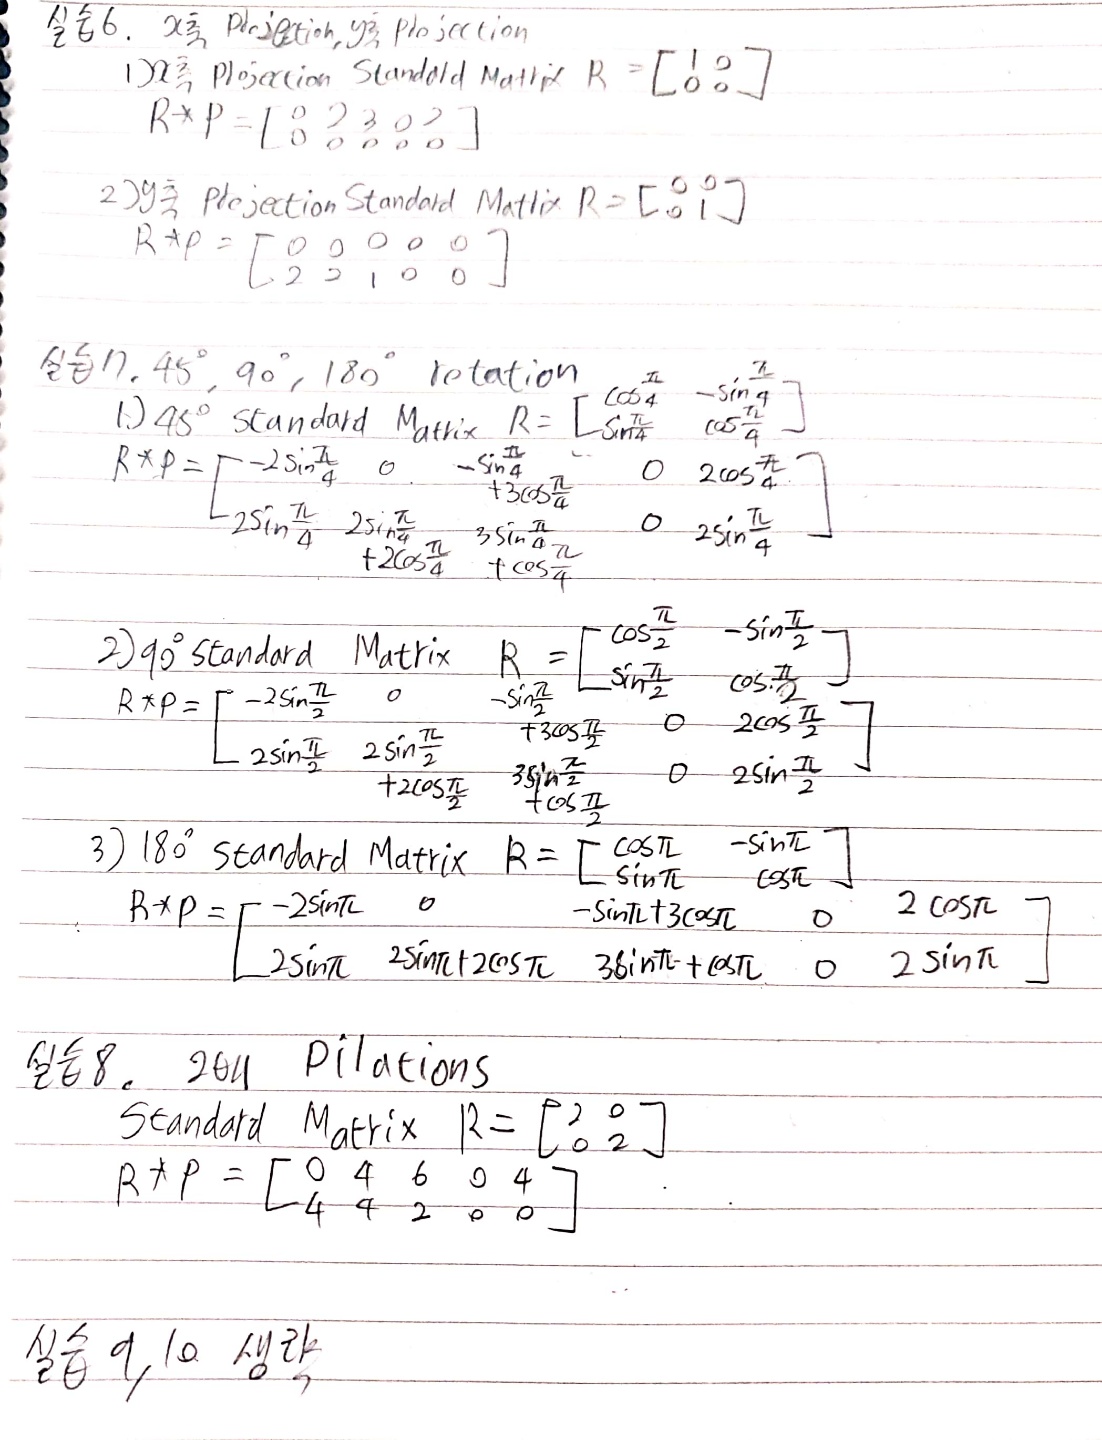 실습6. x축 Projection, y축 projection
1) x축 Projection Standard Matrix R = [1 0
0 0]
R*P = [0 2 3 0 2
0 0 0 0 0]
2) y축 Projection Standard Matrix R = [0 0
0 1]
R*P = [0 0 0 0 0
2 2 1 0 0]
실습7. 45°, 90°, 180° rotation
1) 45° standard Matrix R = [cos π/4 -sin π/4
sin π/4 cos π/4]
R*P = [-2sin π/4 0 -sin π/4 +3cos π/4 0 2cos π/4
2sin π/4 2sin π/4 +2cos π/4 3sin π/4 +cos π/4 0 2sin π/4]
2) 90° standard Matrix R = [cos π/2 -sin π/2
sin π/2 cos π/2]
R*P = [-2sin π/2 0 -sin π/2 +3cos π/2 0 2cos π/2
2sin π/2 2sin π/2 +2cos π/2 3sin π/2 +cos π/2 0 2sin π/2]
3) 180° standard Matrix R = [cosπ -sinπ
sinπ cosπ]
R*P = [-2sinπ 0 -sinπ+3cosπ 0 2cosπ
2sinπ 2sinπ+2cosπ 3sinπ+cosπ 0 2sinπ]
실습8. 2배 Dilations
Standard Matrix R = [2 0
0 2]
R*P = [0 4 6 0 4
4 4 2 0 0]
실습 9, 10 생략